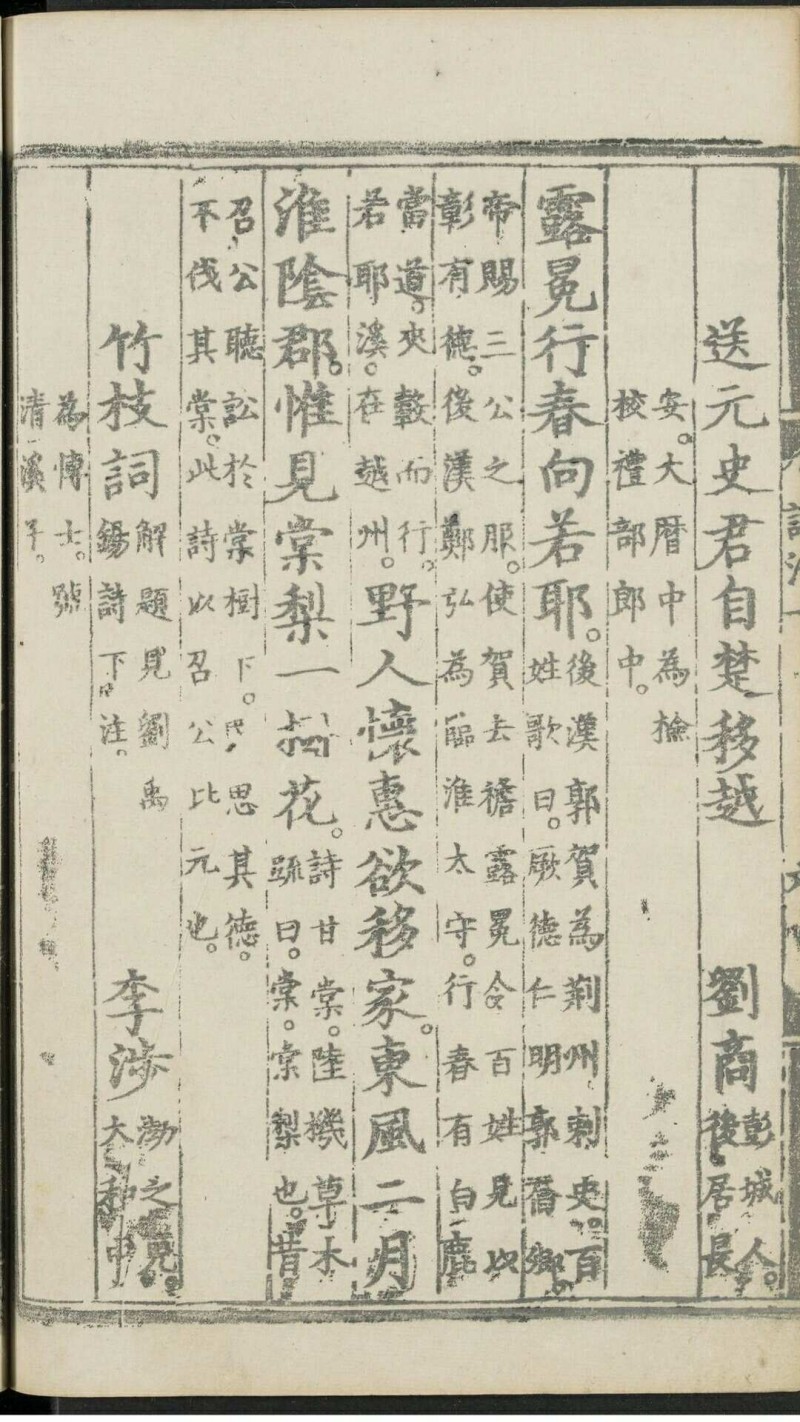 送元史君自楚移越 劉商 彭城人。後居長
安。大曆中為撿校禮部郎中。
露冕行春向若耶。後漢郭賀為荊州刺史。百姓歌曰。厥德仁明郭喬卿。
帝賜三公之服。使賀去襜露冕令百姓見以彰有德。後漢鄭弘為臨淮太守。行春有白鹿
當道。夾轂而行。若耶溪。在越州。野人懷惠欲移家。東風二月
淮陰郡。惟見棠梨一樹花。詩甘棠。陸機草木疏曰。棠。棠梨也。昔
召公聽訟於棠樹下。民思其德。不伐其棠。此詩以召公比元也。
竹枝詞 解題見劉禹錫詩下注。 李涉 渤之兄。大和中
為博士。號清溪子。